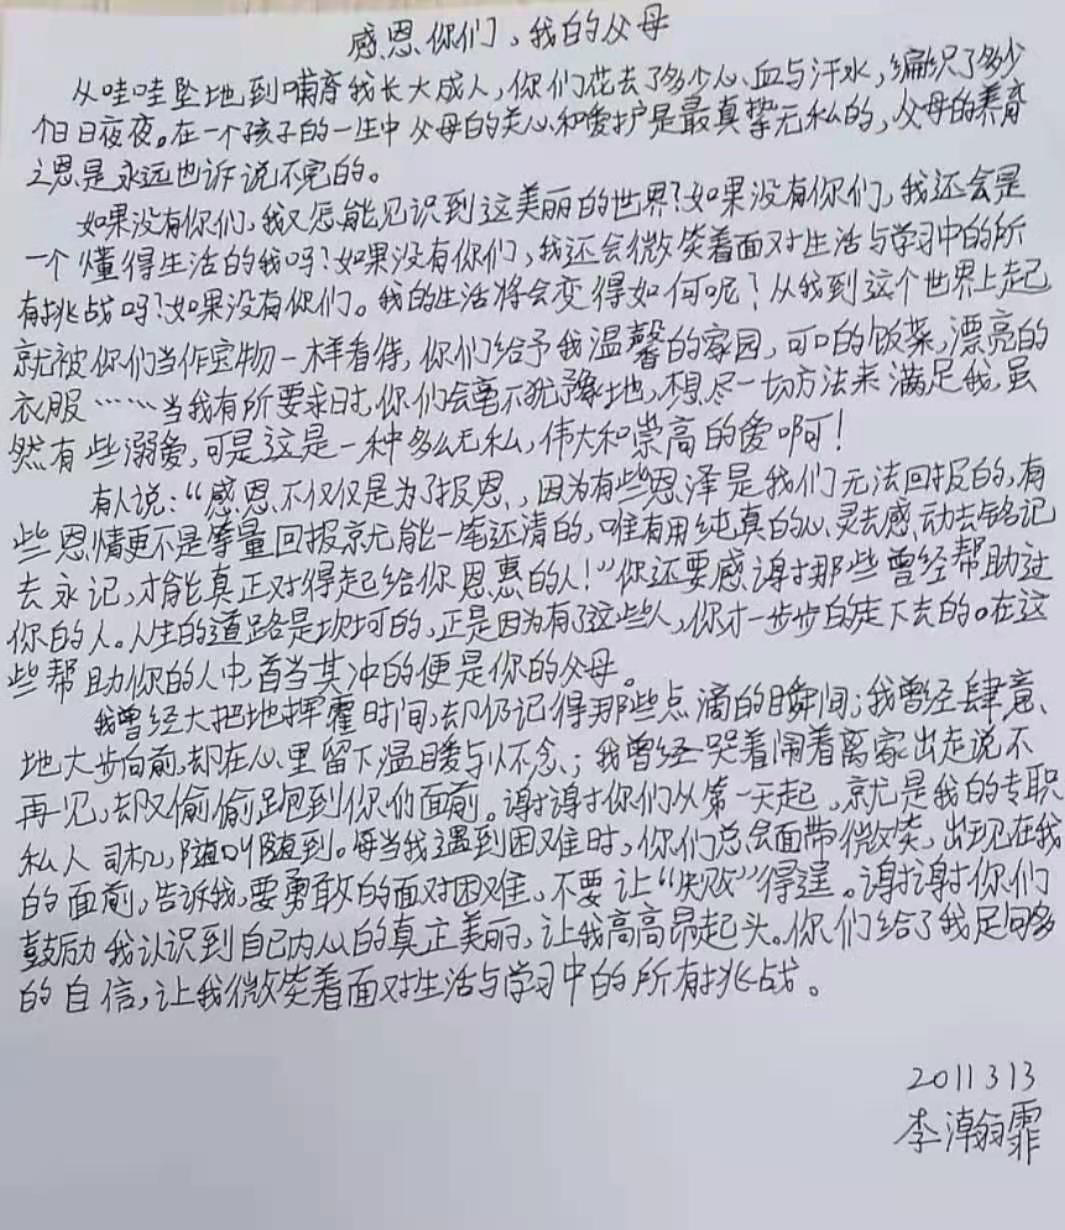 感恩你们,我的父母
从哇哇坠地到哺育我长大成人,你们花去了多少心血与汗水,编织了多少
个日日夜夜。在一个孩子的一生中父母的关心和爱护是最真挚无私的,父母的养育
之恩是永远也诉说不完的。
如果没有你们,我又怎能见识到这美丽的世界?如果没有你们,我还会是
一个懂得生活的我吗?如果没有你们,我还会微笑着面对生活与学习中的所
有挑战吗?如果没有你们。我的生活将会变得如何呢?从我到这个世界上起
就被你们当作宝物一样看待,你们给予我温馨的家园,可口的饭菜,漂亮的
衣服……当我有所要求时,你们会毫不犹豫地,想尽一切方法来满足我,虽
然有些溺爱,可是这是一种多么无私,伟大和崇高的爱啊!
有人说:“感恩不仅仅是为了报恩,因为有些恩泽是我们无法回报的,有
些恩情更不是等量回报就能一笔还清的,唯有用纯真的心灵去感动去铭记
去永记,才能真正对得起给你恩惠的人!”你还要感谢那些曾经帮助过
你的人。人生的道路是坎坷的,正是因为有了这些人,你才一步步的走下去的。在这
些帮助你的人中,首当其冲的便是你的父母。
我曾经大把地挥霍时间,却仍记得那些点滴的瞬间;我曾经肆意、
地大步向前,却在心里留下温暖与怀念;我曾经哭着闹着离家出走说不
再见,却又偷偷跑到你们面前。谢谢你们从第一天起,就是我的专职
私人司机,随叫随到。每当我遇到困难时,你们总会面带微笑,出现在我
的面前,告诉我,要勇敢的面对困难,不要让“失败”得逞。谢谢你们
鼓励我认识到自己内心的真正美丽,让我高高昂起头。你们给了我足够多
的自信,让我微笑着面对生活与学习中的所有挑战。
2011313
李瀚霏